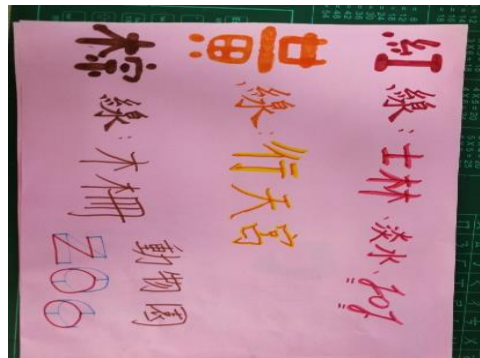 紅線:士林、淡水、
黃線:行天宮
棕線:木柵
動物園
ZOO